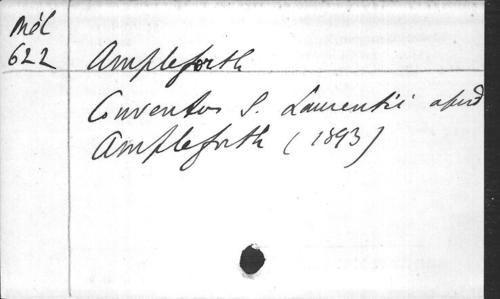 Mél
622
Ampleforth
Conventus S. Laurentii apud
Ampleforth (1893)